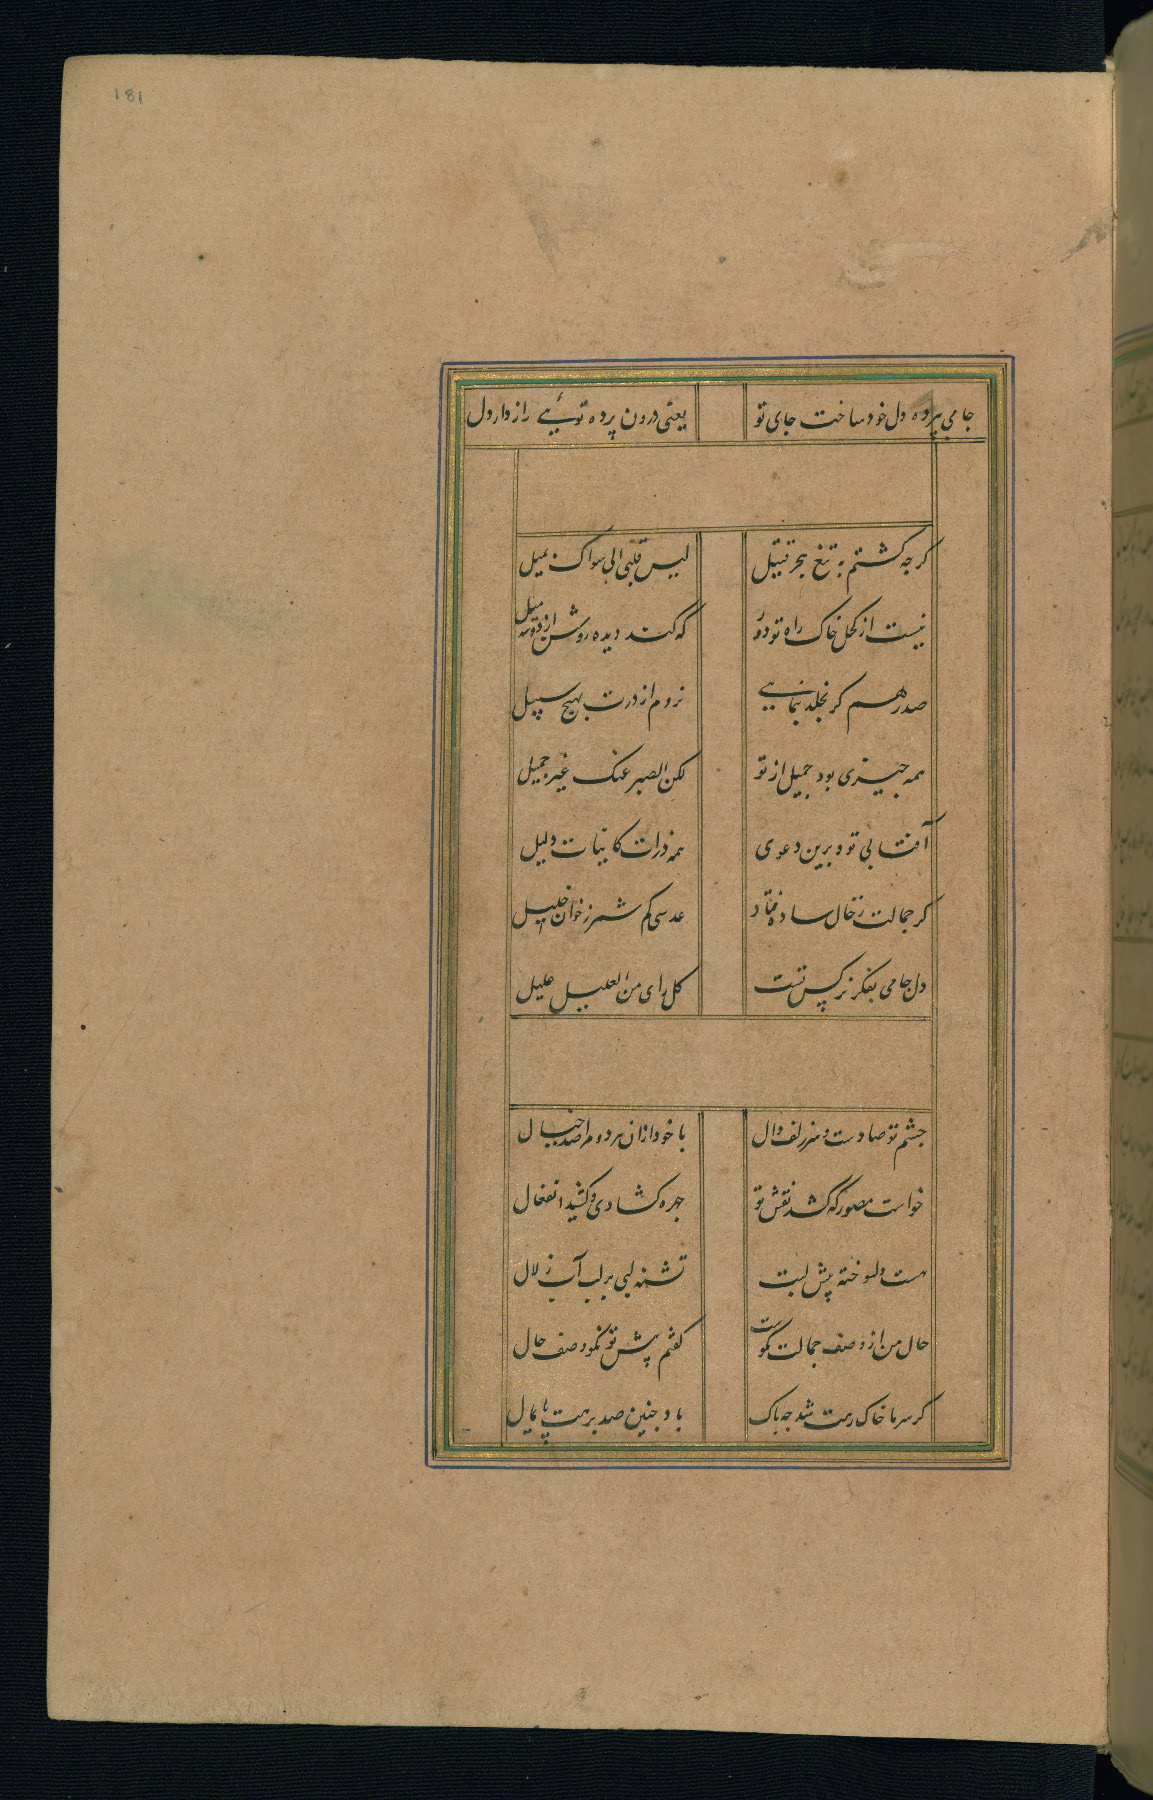 181
جامی پرده دل خود ساخت جای تو یعنی درون پرده تویی راز دار دل
کرچه کشتم به تیغ هجر قتیل لیس قلبی الی سواک یمیل
نیست از کحل خاک راه تو دور که کند دیده روشن از دو سه میل
صد رهم کر بخلد بنمایی نروم از درت بهیچ سبیل
همه چیزی بود جمیل از تو لکن الصبر عنک غیر جمیل
آفتابی تو و برین دعوی همه ذرات کاینات دلیل
کر جمالت ز خال ساده فتاد عدسی کم شمر ز خوان خلیل
دل جامی بفکر نرکس تست کل رای من العلیل علیل
چشم تو صادست و سر زلف دال با خود ازان هر دو مرا صد خیال
خواست مصور که کشد نقش تو چهره کشادی و کشید انفعال
هست دلسوخته پیش لبت تشنه لبی بر لب آب زلال
حال من از وصف جمالت نکوست کفتم پیش تو نکو وصف حال
کر سر ما خاک رهت شد چه باک باد چنین صد برهت پایمال